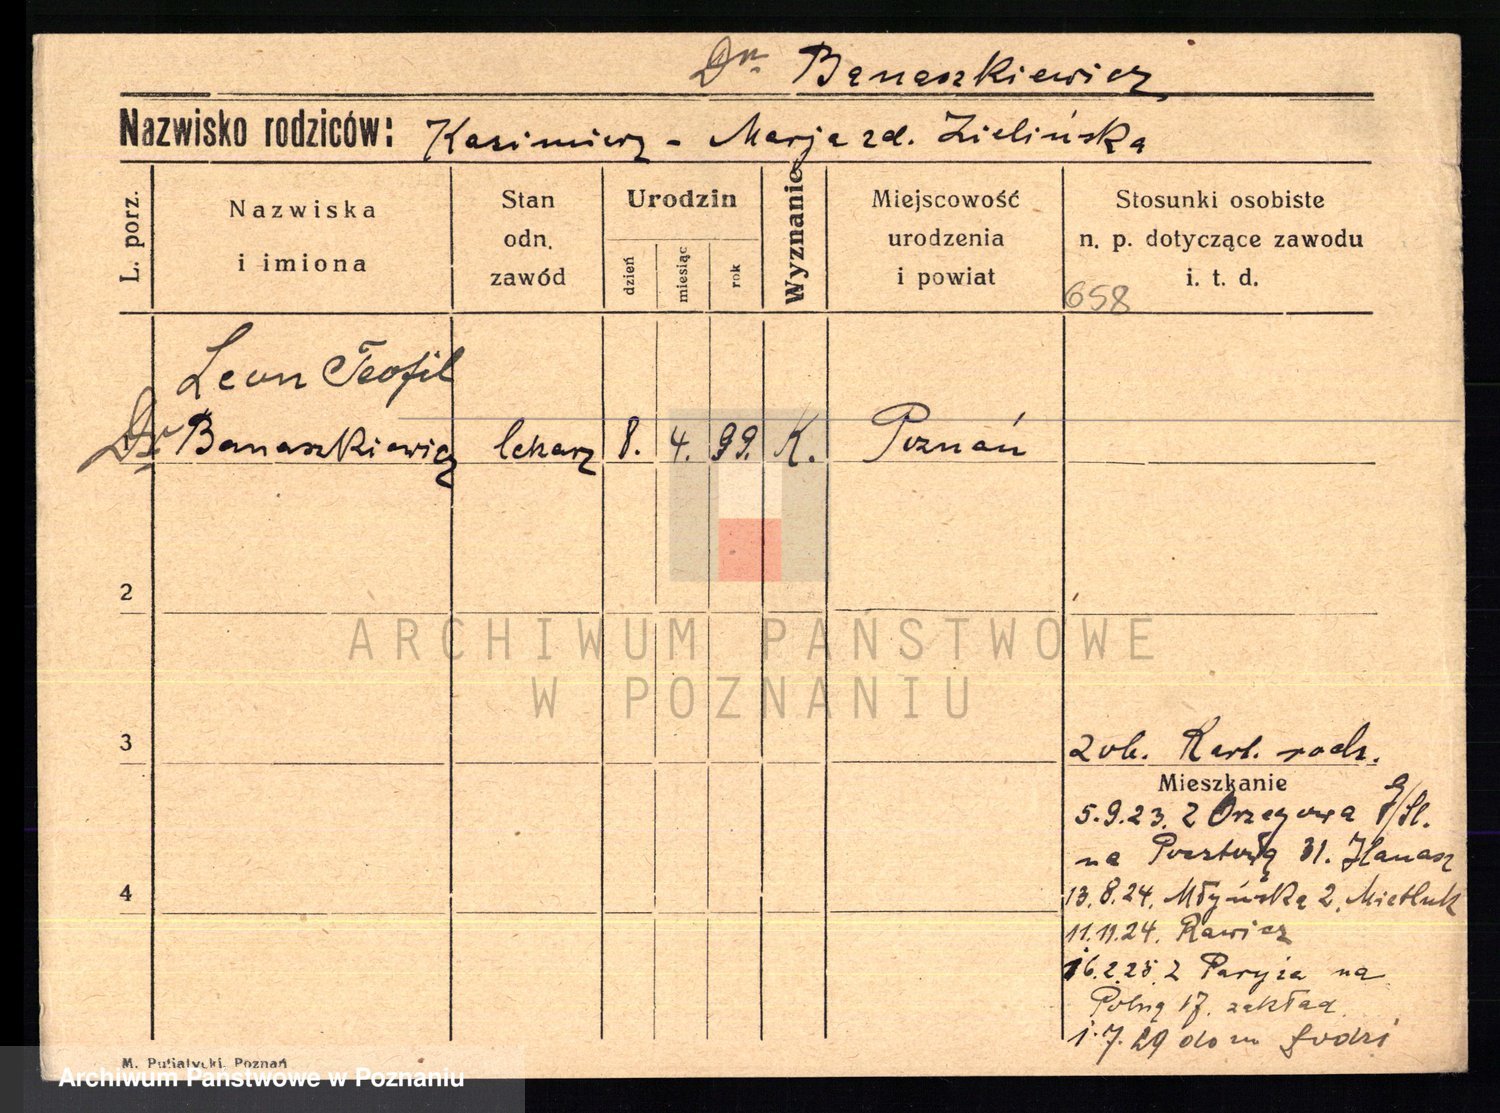 Dr. Banaszkiewicz
Nazwisko rodziców: Kazimierz - Marja zd. Zielińska
L. porz.
Nazwiska
i imiona
Stan
odn.
zawód
Urodzin
dzień
miesiąc
rok
Wyznanie
Miejscowość
urodzenia
i powiat
Stosunki osobiste
n. p. dotyczące zawodu
i. t. d.
658
Leon Teofil
Dr Banaszkiewicz lekarz 8. 4. 99. K. Poznań
2
ARCHIWUM PAŃSTWOWE
W POZNANIU
3
zob. Kart. rodz.
Mieszkanie
5.9.23. z Orzegowa G/Śl.
na Pocztową 31. Hanasz
4
13.8.24. Młyńska 2.
11.11.24. Rawicz
16.2.25 z Paryża na
Polną 17. zakład
1.7.29 do m Łodzi
M. Putiatycki, Poznań
Archiwum Państwowe w Poznaniu